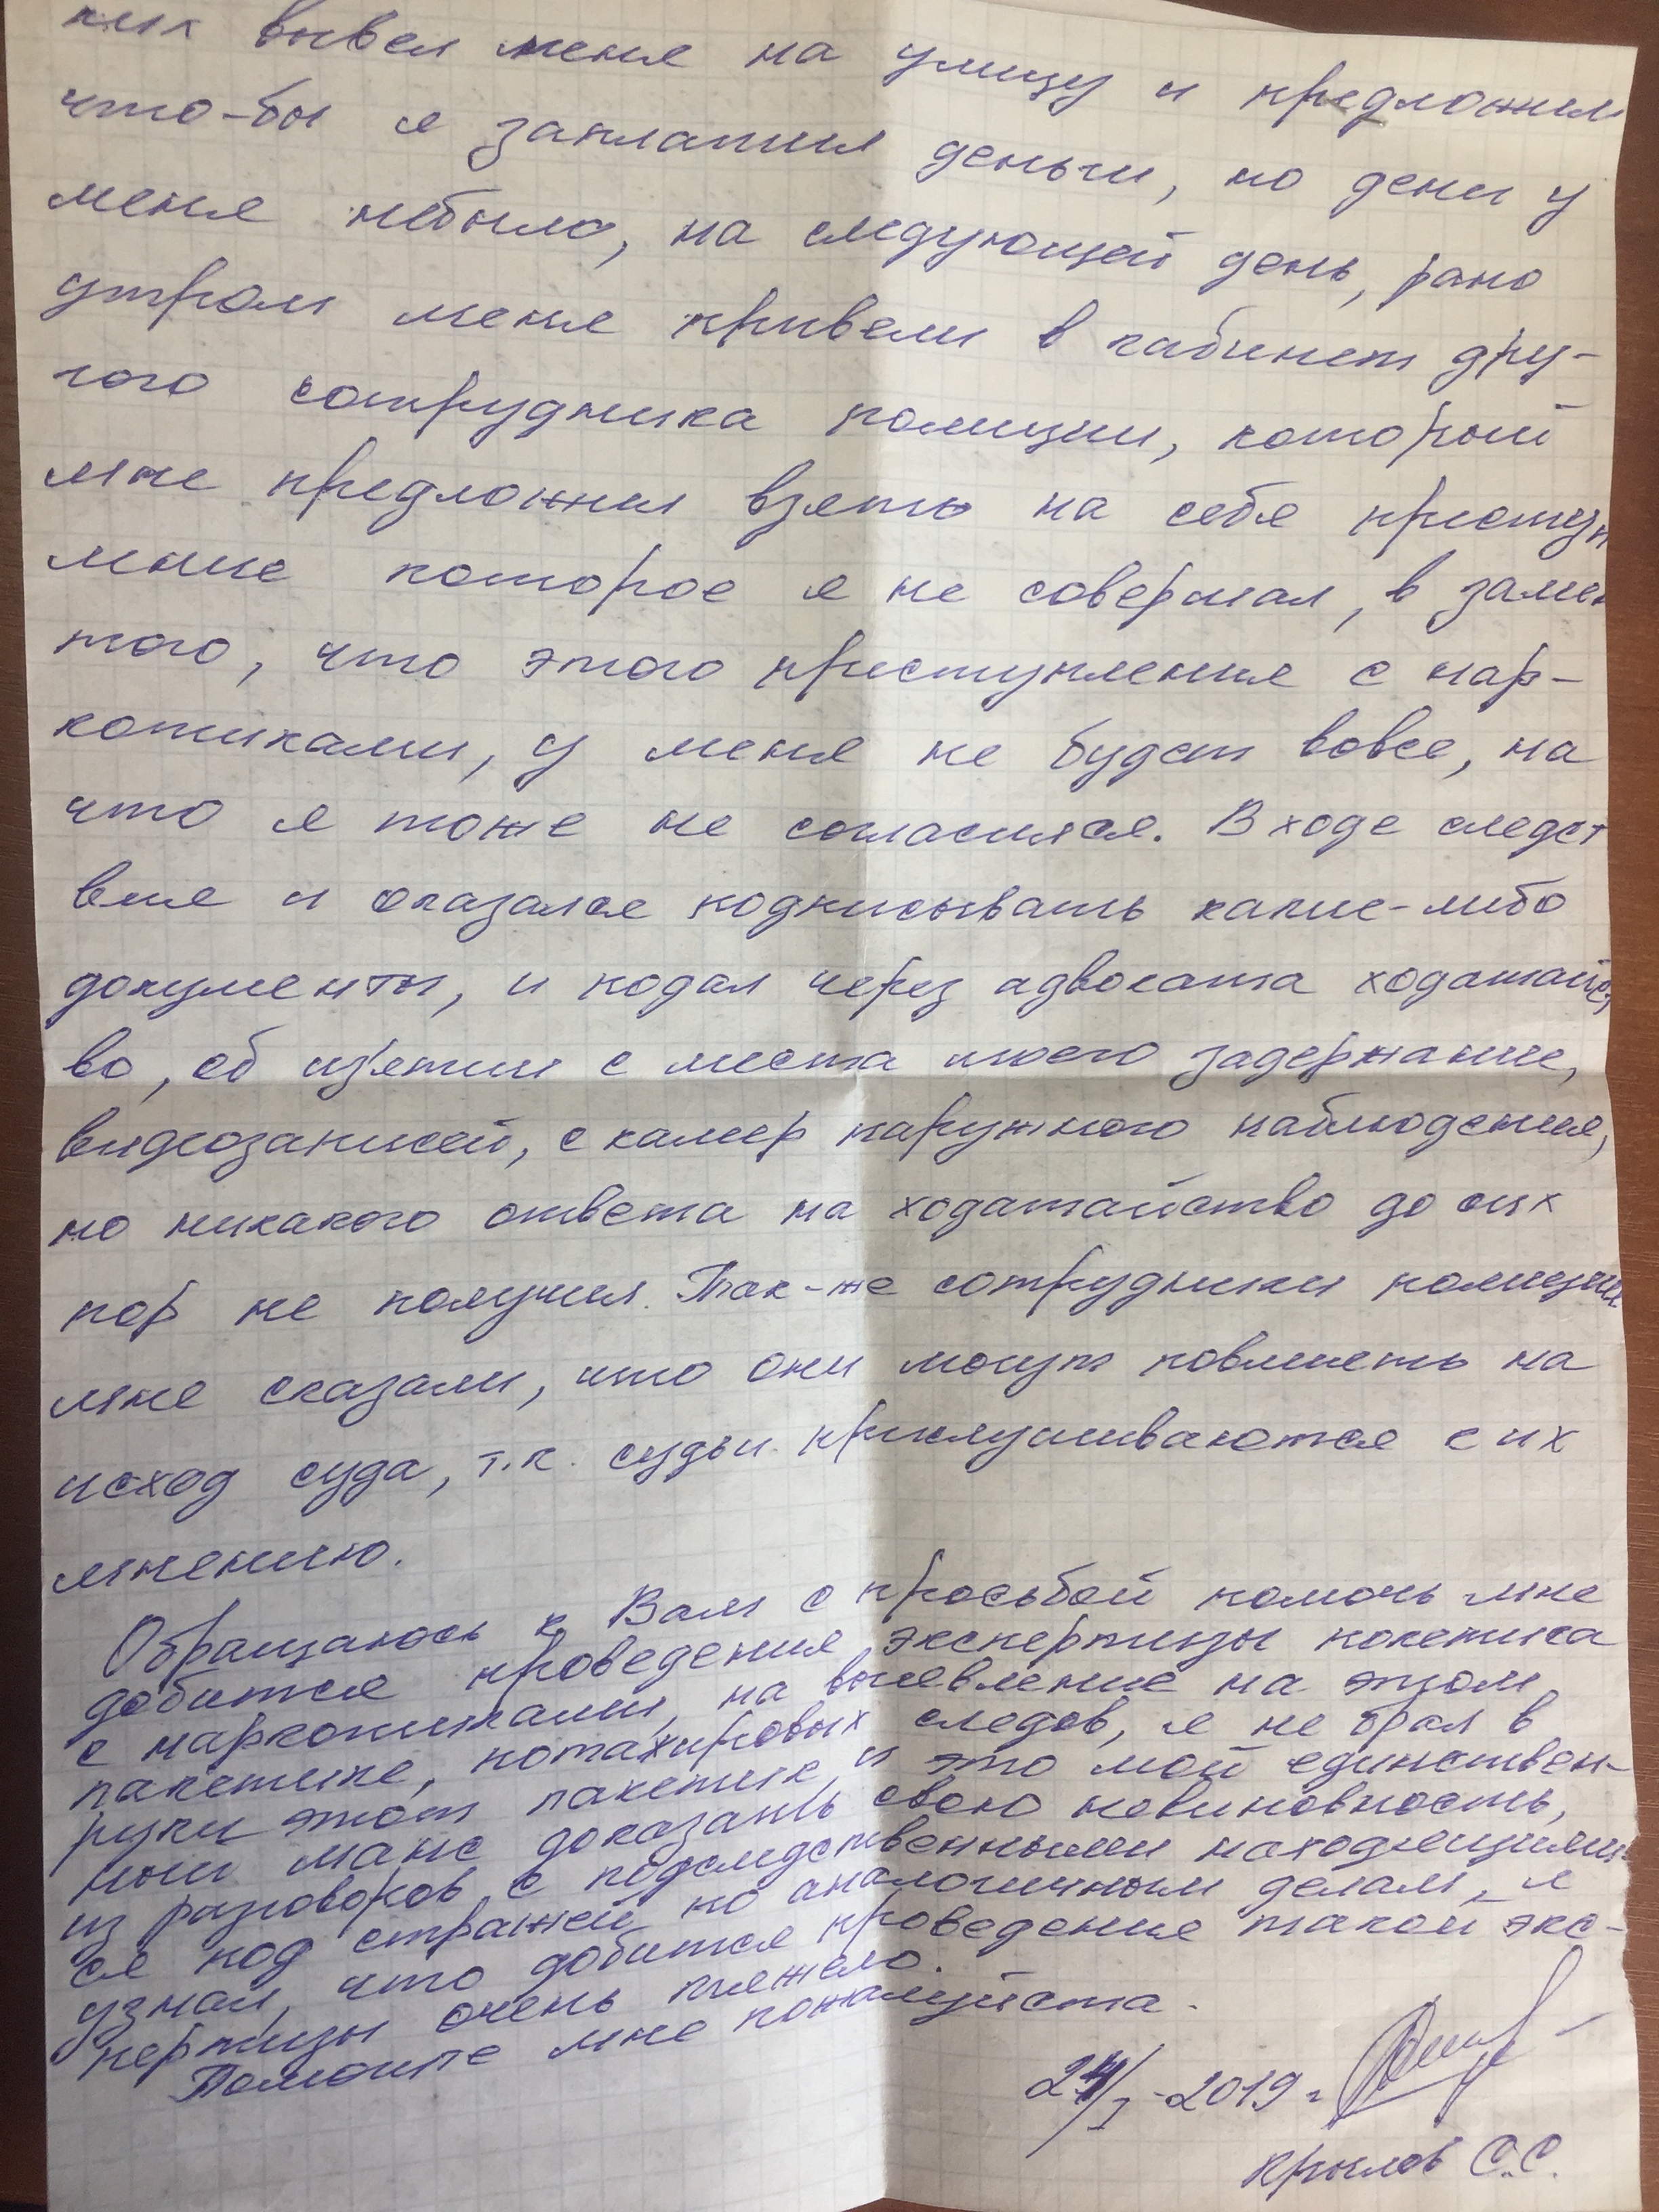 них вывел меня на улицу и предложил
что-бы я заплатил деньги, но дени у
меня небыло, на следующей день, рано
утром меня привели в кабинет дру-
гого сотрудника полиции, который
мне предложил взять на себя приступ
ление которое я не совершал, в замен
того, что этого приступления с нар-
котиками, у меня не будет вовсе, на
что я тоже не согласился. В ходе следст
вия и отказался подписывать какие-либо
документы, и подал через адвоката ходатайст
во, об изъятии с места моего задержание,
видеозаписей, с камер наружного наблюдения,
но никакого ответа на ходатайство до сих
пор не получил. Так-же сотрудники полиции
мне сказали, что они могут повлиять на
исход суда, т.к. судьи прислушиваются к их
мнению.
Обращаюсь к Вам с просьбой помочь мне
добится проведения экспертизы пакетика
с наркотиками, на выявление на этом
пакетике, потажировых следов, я не брал в
руки этот пакетик и это мой единствен-
ный шанс доказать свою невиновность,
из разговоров с подследственными находящими
ся под стражей по аналогичным делам, я
узнал, что добится проведения такой экс-
пертизы очень тяжело.
Помогите мне пожалуйста.
24/I-2019г.
Крылов С.С.